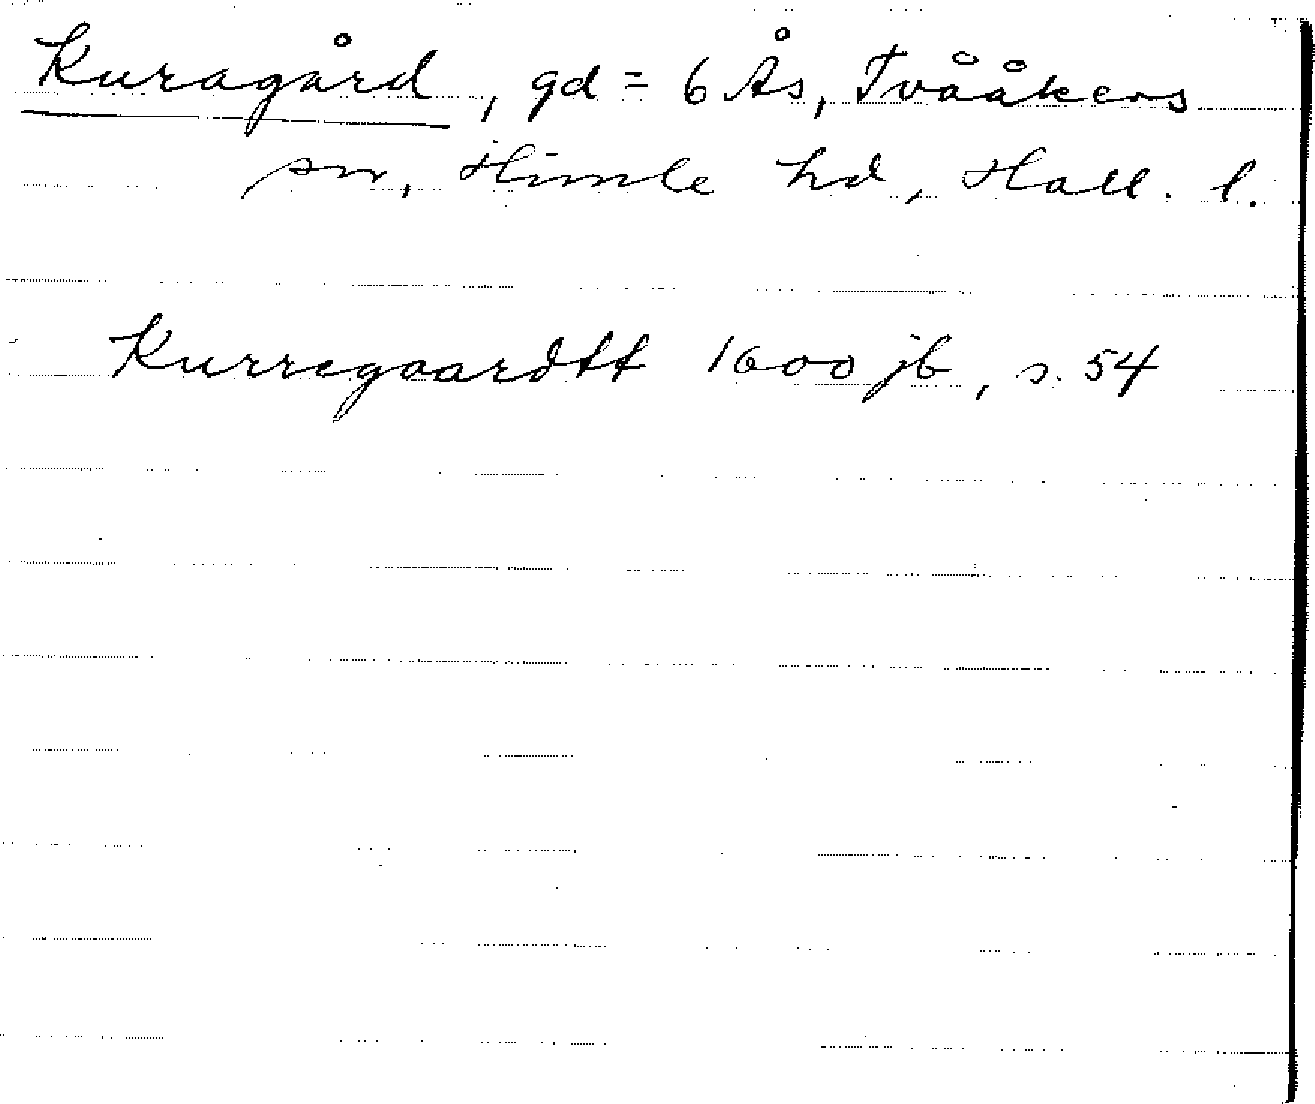 Kuragård, gd = 6 Ås, Tvååkers
sn, Himle hd, Hall. l.
Kurregaardtt 1600 jb, s. 54